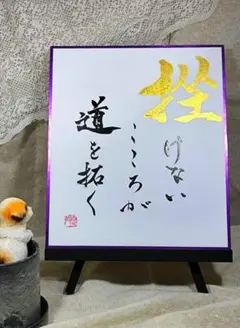 挫けない
こころが
道を拓く